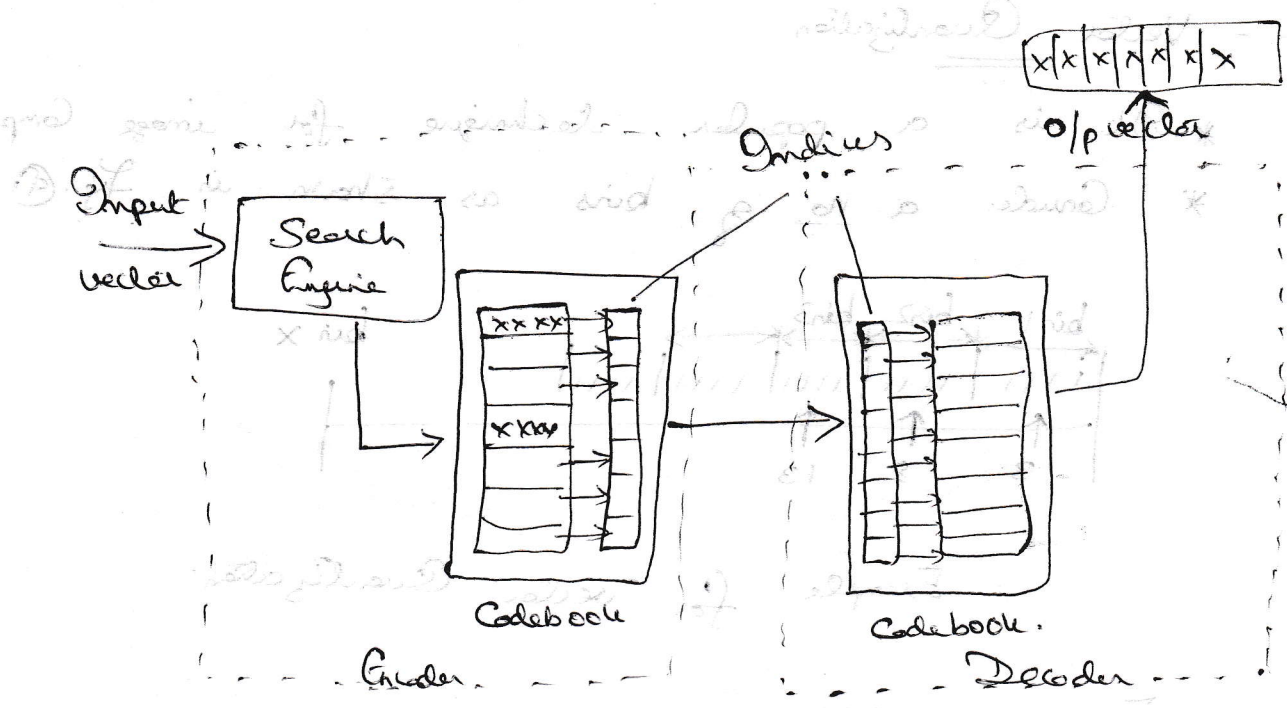 x x x x x x x
O/p vector
Indices
Input
vector
Search
Engine
xx xx
x xxx
Codebook
Codebook.
Encoder
Decoder